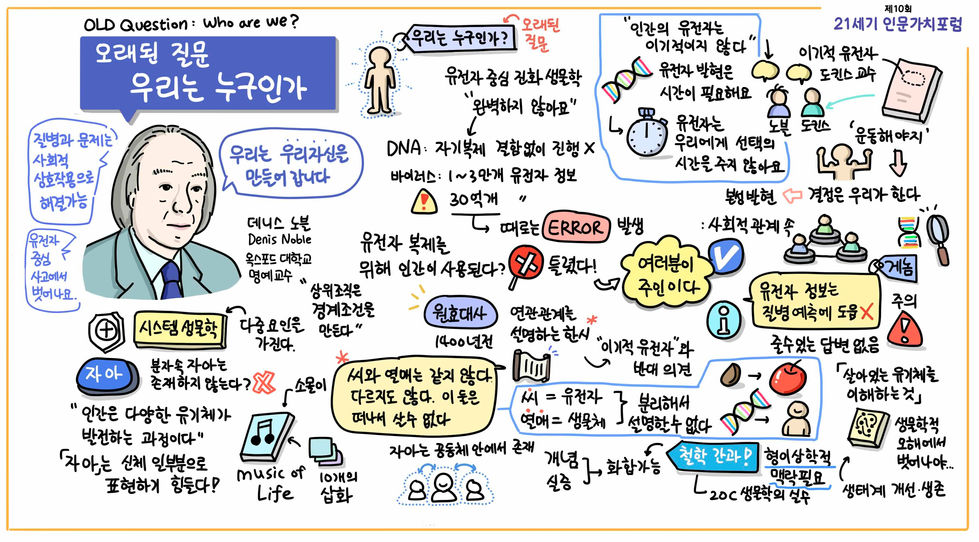 OLD Question : Who are we?
오래된 질문
우리는 누구인가
질병과 문제는
사회적
상호작용으로
해결가능
유전자
중심
사고에서
벗어나요.
우리는 우리자신을
만들어 갑니다
데니스 노블
Denis Noble
옥스포드 대학교
명예교수
시스템 생물학
다중요인은
가진다.
"상위조직은
경계조건을
만든다"
자아
분자속 자아는
존재하지 않는다?
"인간은 다양한 유기체가
발전하는 과정이다"
「자아」는 신체 일부분으로
표현하기 힘들다!
소물이
music of
Life
10개의
삽화
우리는 누구인가?
오래된
질문
유전자 중심 진화 생물학
"완벽하지 않아요"
DNA : 자기복제 결함없이 진행 X
바이러스 : 1~3만개 유전자 정보
30억개 "
때로는 ERROR 발생
유전자 복제를
위해 인간이 사용된다?
틀렸다!
원효대사
1400년전
연관관계를
설명하는 한시
"이기적 유전자"와
반대 의견
씨와 열매는 같지 않다
다르지도 않다. 이 둘은
떠나서 살수 없다
씨 = 유전자
열매 = 생물체
분리해서
설명할수 없다
자아는 공동체 안에서 존재
개념
실증
화합가능
철학 간과!
20C 생물학의 실수
형이상학적
맥락필요
제10회
21세기 인문가치포럼
"인간의 유전자는
이기적이지 않다"
유전자 발현은
시간이 필요해요
유전자는
우리에게 선택의
시간을 주지 않아요
이기적 유전자
도킨스 교수
노블
도킨스
'운동해야지'
결정은 우리가 한다.
: 사회적 관계 속
여러분이
주인이다
게놈
유전자 정보는
질병 예측에 도움 X
줄수있는 답변 없음
주의
「살아있는 유기체를
이해하는것」
생물학적
오해에서
벗어나야...
생태계 개선·생존